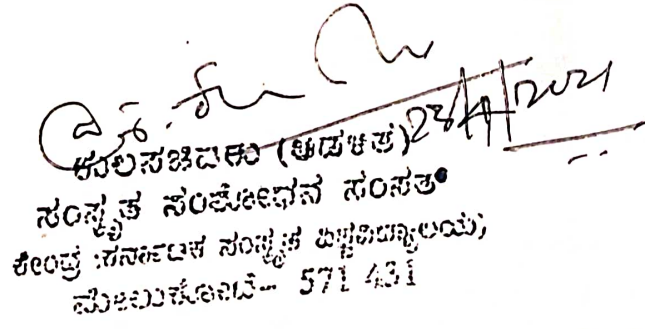 ಕುಲಸಚಿವರು (ಆಡಳಿತ)
ಸಂಸ್ಕೃತ ಸಂಶೋಧನ ಸಂಸತ್
ಕೇಂದ್ರ :ಕರ್ನಾಟಕ ಸಂಸ್ಕೃತ ವಿಶ್ವವಿದ್ಯಾಲಯ,
ಮೇಲುಕೋಟೆ- 571 431